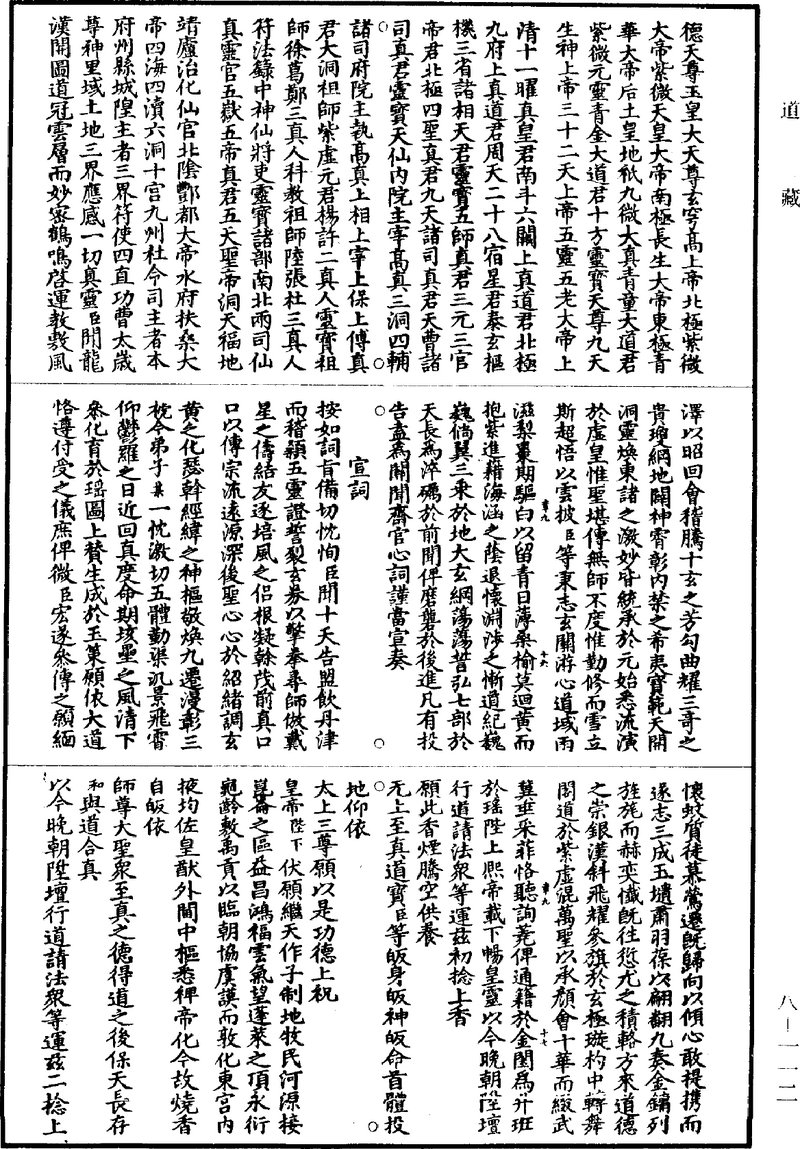 道藏
八—一一二
德天尊玉皇大天尊玄穹髙上帝北極紫微
大帝紫微天皇大帝南極長生大帝東極青
華大帝后土皇地祇九微大真青童大道君
紫微元靈青金大道君十方靈寳天尊九天
生神上帝三十二天上帝五靈五老大帝上
清十一曜真皇君南斗六闕上真道君北極
九府上真道君周天二十八宿星君泰玄樞
機三省諸相天君靈寳五師真君三元三官
帝君北極四聖真君九天諸司真君天曹諸
司真君靈寳天仙内院主宰髙真三洞四輔
諸司府院主執髙真上相上宰上保上傅真
君大洞祖師紫虚元君楊許二真人靈寳祖
師徐葛鄭三真人科教祖師陸張杜三真人
符法籙中神仙將吏靈寳諸部南北兩司仙
真靈官五嶽五帝真君五天聖帝洞天福地
靖廬治化仙官北陰酆都大帝水府扶桑大
帝四海四瀆六洞十宫九州社令司主者本
府州縣城隍主者三界符使四直功曹太歲
尊神里域土地三界應感一切真靈臣聞龍
漢開圖道冠雲層而妙宻鶴鳴啓運教敷風
澤以昭回會稽騰十玄之芳勾曲耀三哥之
貴瓊綱地闢神霄彰内禁之希夷寳範天開
洞靈煥東諸之激妙皆統承於元始悉流演
於虚皇惟聖堪傳無師不度惟勤修而雪立
斯超悟以雲披臣等秉志玄關游心道域雨
滋梨棗期驅白以留青日薄桑榆莫迴黄而
抱紫進藉海涵之蔭退懷淵涉之慚道紀巍
巍倘翼三乘於地大玄綱蕩蕩誓弘七部於
天長爲淬礪於前聞俾磨礱於後進凡有投
告盍爲闢聞齋官心詞謹當宣奏
宣詞
按如詞旨備切忱恂臣聞十天告盟飲丹津
而稽顙五靈證誓裂玄券以擎拳尋師倣戴
星之儔結友逐培風之侣根凝榦茂前真口
口以傳宗流遠源深後聖心心於紹緒調玄
黄之化瑟幹經緯之神樞敬煥九還漫彰三
梲今弟子某一忱激切五體勤渠汎景飛霄
仰鬱羅之日近回真度命期垓壘之風清下
叅化育於瑶圖上贊生成於玉菓願依大道
恪遵付受之儀庶俾微臣宏遂叅傳之願緬
懷蚊質徒慕鶯遷旣歸向以傾心敢提携而
遂志三成玉壝肅羽葆以翩翻九奏金鏞列
旌旄而赫奕懺旣往愆尤之積輅方來道德
之崇銀漢斜飛耀參旗於玄極璇杓中轉舞
閣道於紫虚混萬聖以承顔會十華而綴武
冀垂采菲恪聽詢蕘俾通籍於金闈爲升班
於瑶陛上熙帝載下暢皇靈以今晚朝陞壇
行道請法衆等運茲初捻上香
願此香煙騰空供養
无上至真道寳臣等皈身皈神皈命首體投
地仰依
太上三尊願以是功德上祝
皇帝陛下伏願繼天作子制地牧民河源接
崑崙之區益昌鴻福雲氣望蓬萊之頂永衍
龜齡敷禹貢以臨朝協虞謨而敦化東宫内
掖均佐皇猷外閫中樞悉裨帝化今故燒香
自皈依
師尊大聖衆至真之德得道之後保天長存
和與道合真
以今晚朝陞壇行道請法衆等運茲二捻上